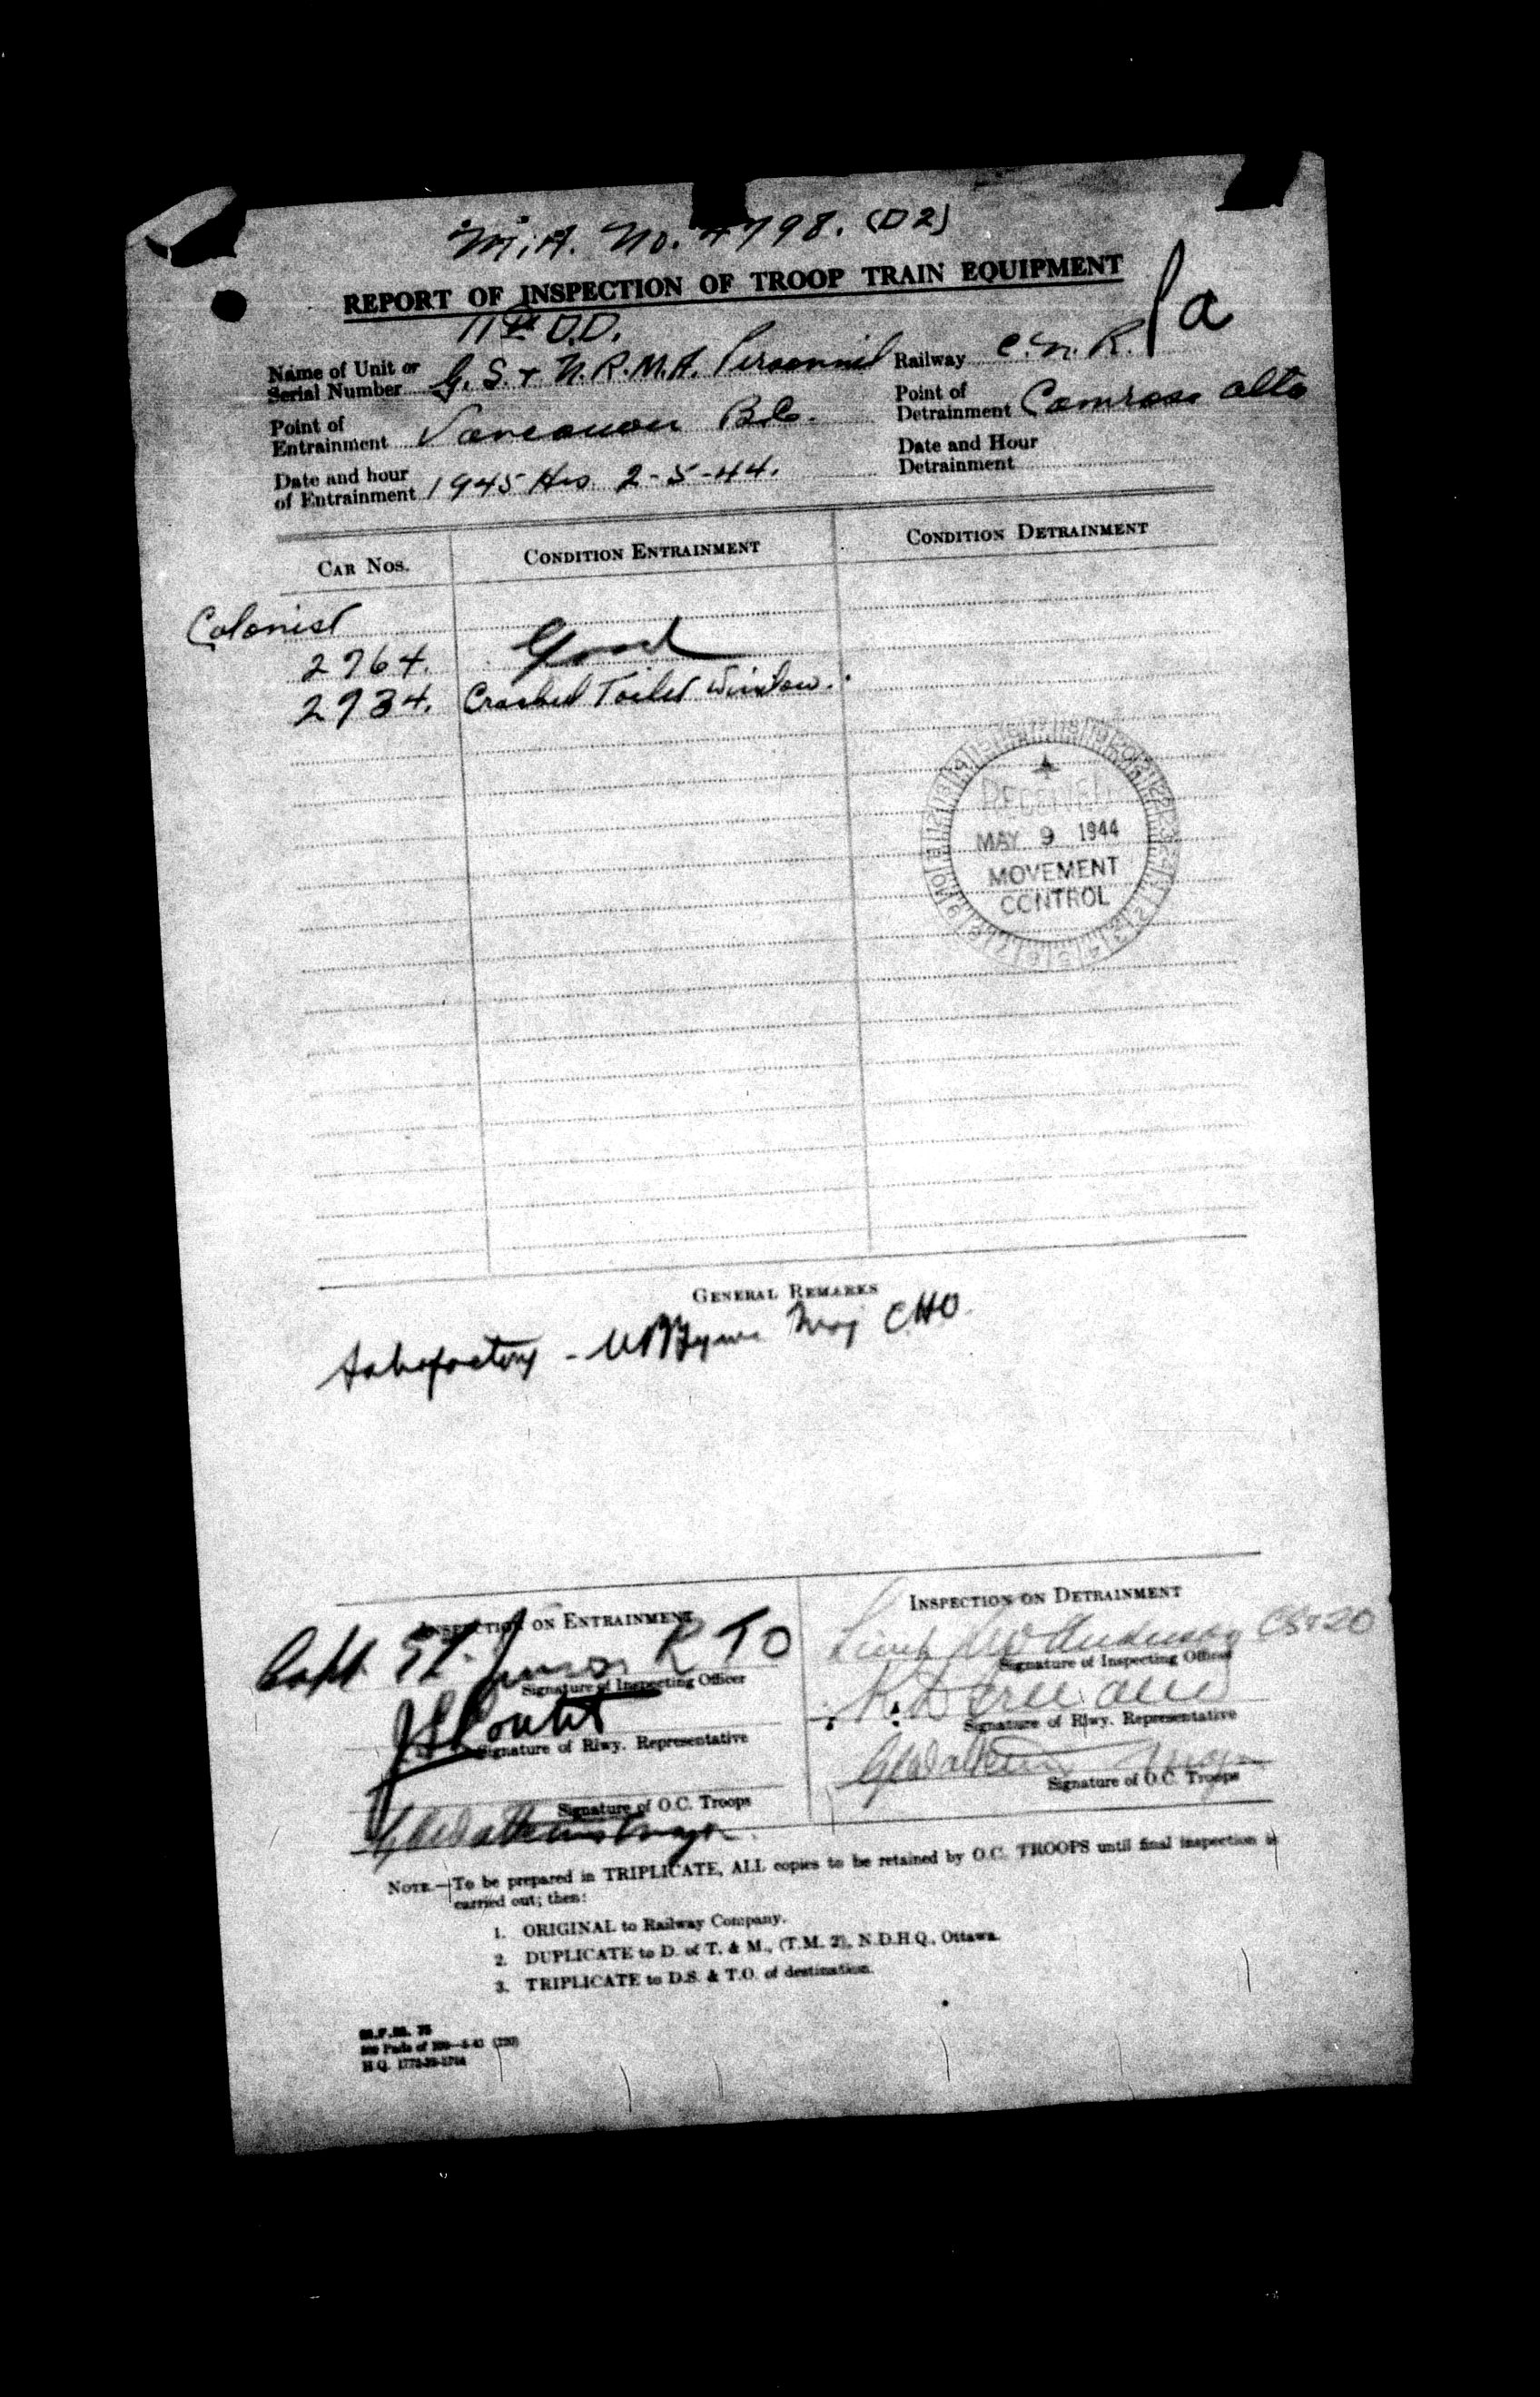 M.A. No. 4798. (D2)
REPORT OF INSPECTION OF TROOP TRAIN EQUIPMENT
a
11 D.D.
Name of Unit or Serial Number G.S. + N.R.M.A. Personnel Railway C.N.R.
Point of Entrainment Vancouver B.C. Point of Detrainment Camrose Alta
Date and hour of Entrainment 1945 Hrs 2-5-44. Date and Hour Detrainment
CAR NOS. CONDITION ENTRAINMENT CONDITION DETRAINMENT
Colonist
2764. Good
2734. Cracked Toilet Window.
RECEIVED
MAY 9 1944
MOVEMENT
CONTROL
GENERAL REMARKS
Satisfactory - Maj
INSPECTION ON ENTRAINMENT INSPECTION ON DETRAINMENT
Capt. RTO Lieut Anderson
Signature of Inspecting Officer Signature of Inspecting Officer
Signature of Rlwy. Representative Signature of Rlwy. Representative
Signature of O.C. Troops Signature of O.C. Troops
NOTE.—To be prepared in TRIPLICATE, ALL copies to be retained by O.C. TROOPS until final inspection is
carried out; then:
1. ORIGINAL to Railway Company.
2. DUPLICATE to D. of T. & M., (T.M. 2), N.D.H.Q., Ottawa.
3. TRIPLICATE to D.S. & T.O. of destination.
M.F.M. 75
H.Q.